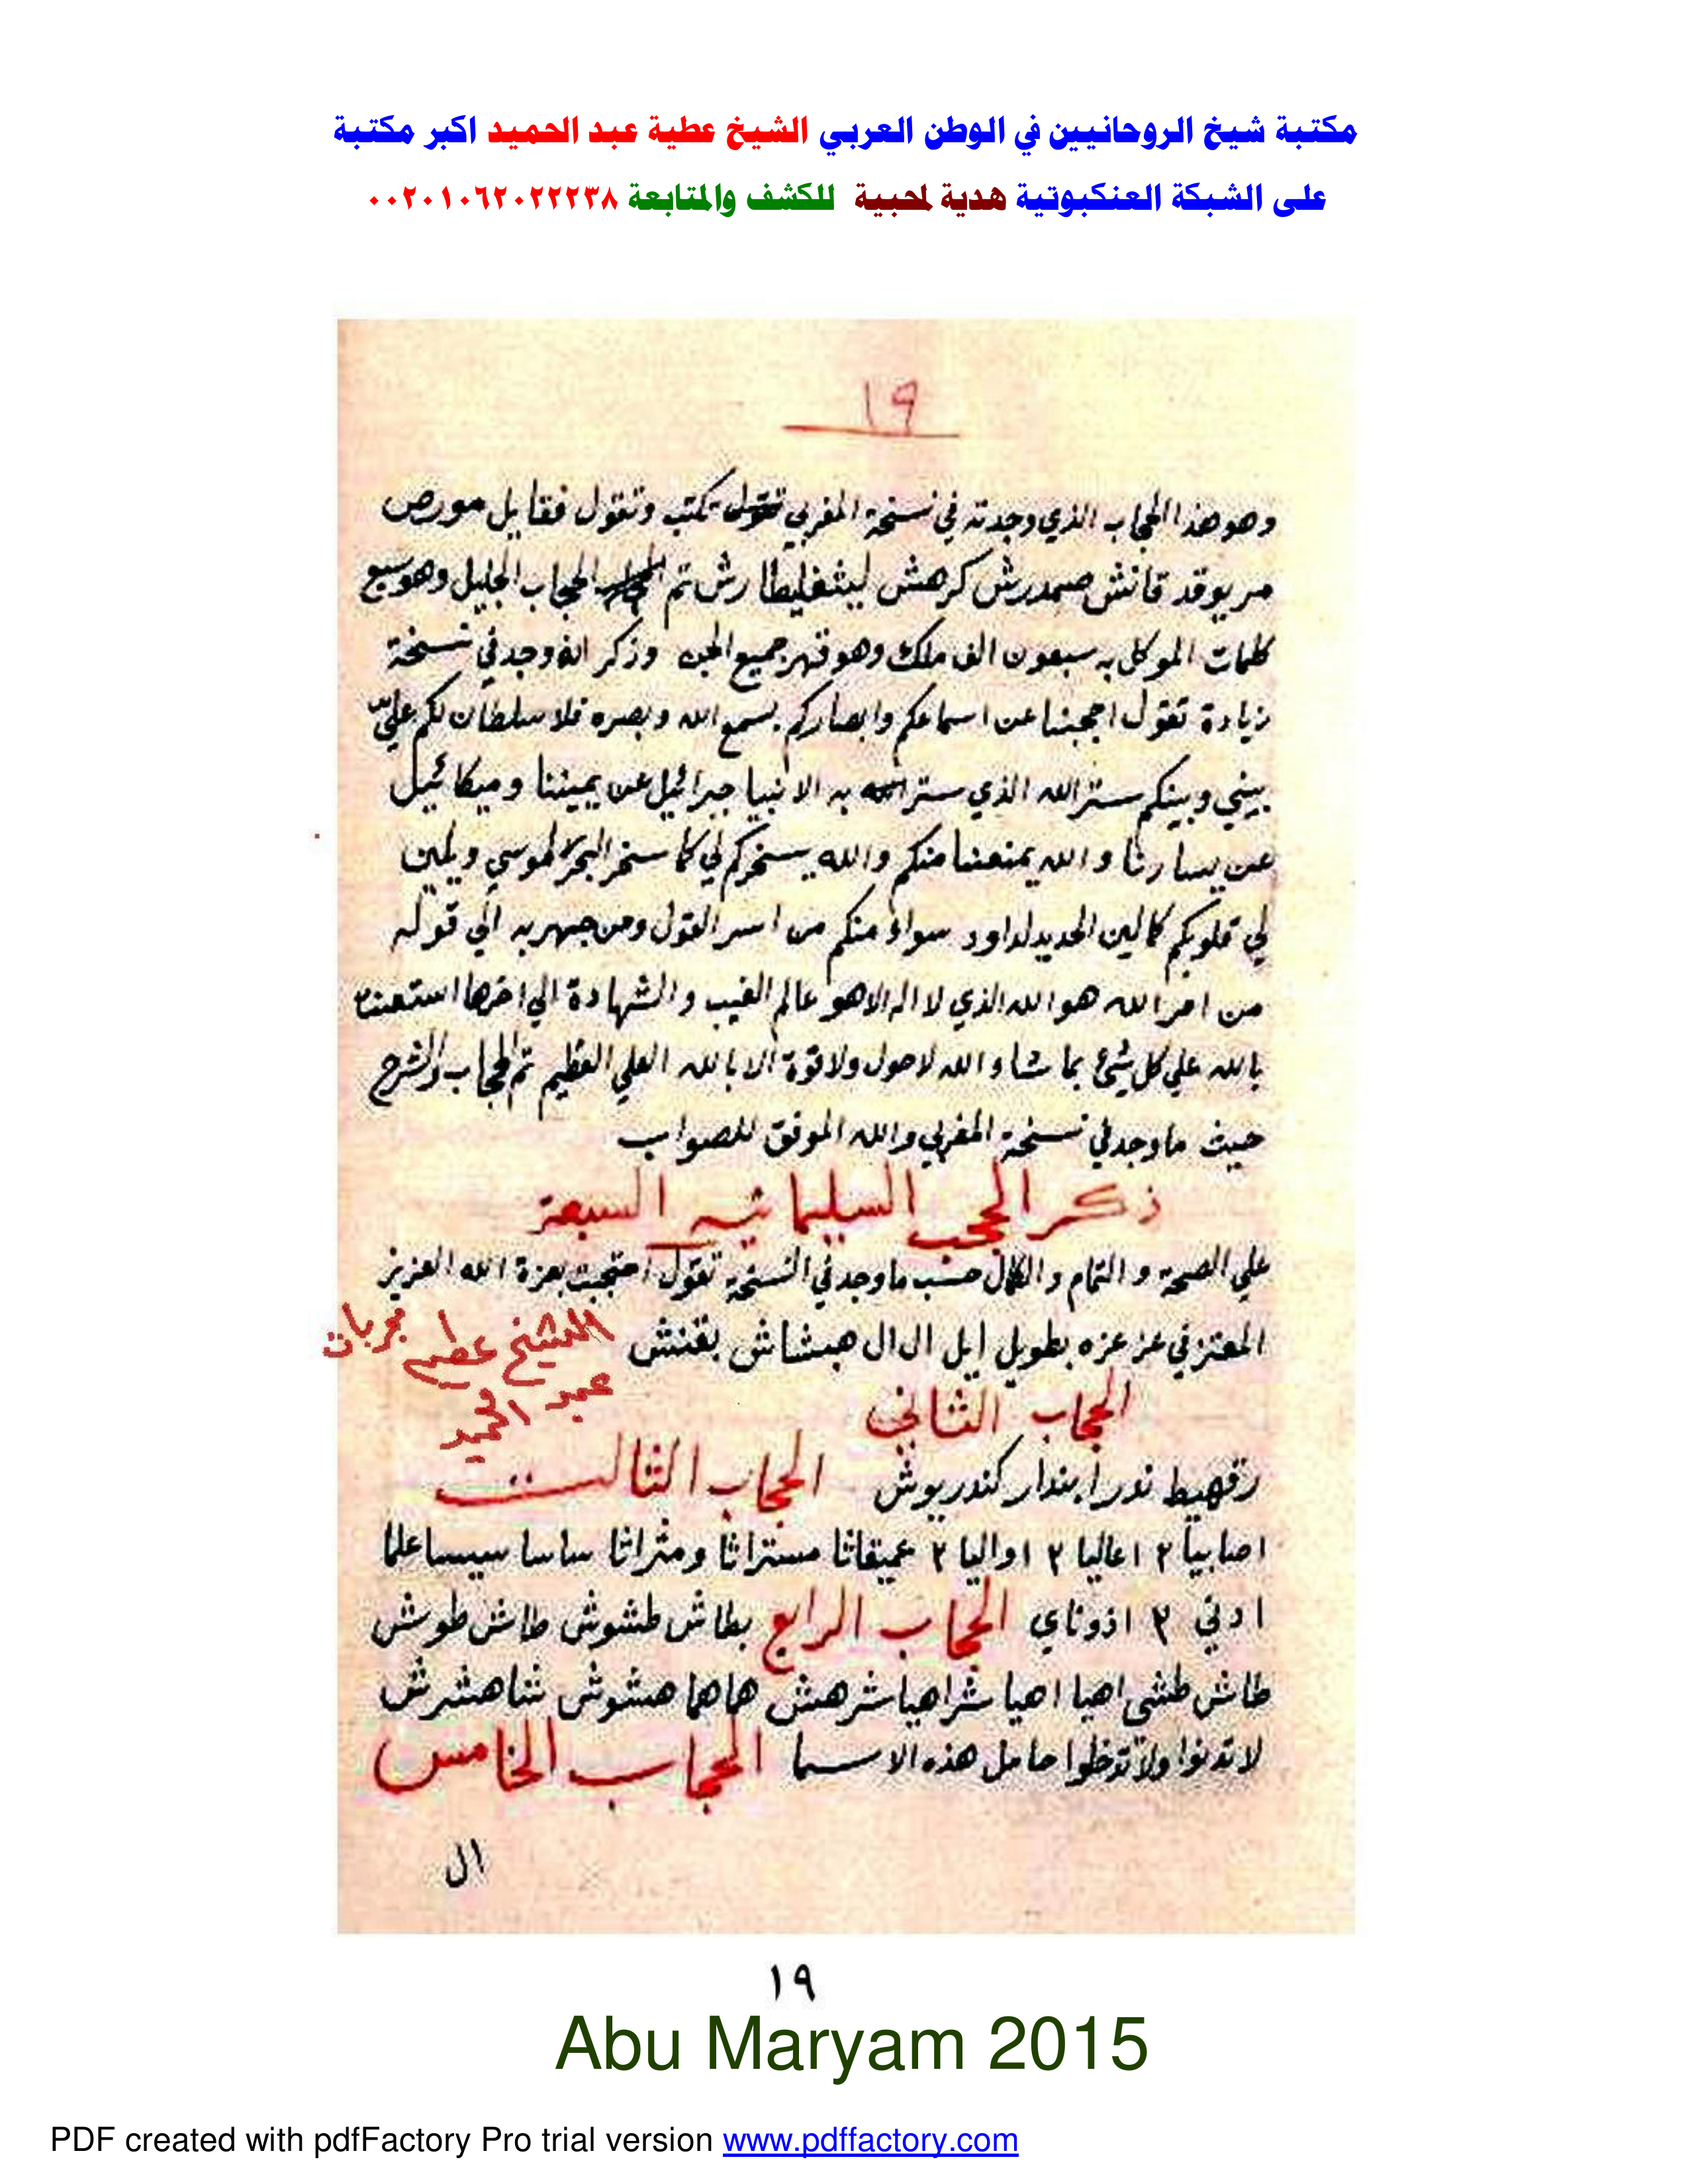 مكتبة شيخ الروحانيين في الوطن العربي الشيخ عطية عبد الحميد اكبر مكتبة
على الشبكة العنكبوتية هدية لمحبية للكشف والمتابعة ٠٠٢٠١٠٦٢٠٢٢٢٣٨
١٩
وهو هذا الحجاب الذي وجدته في نسخة المغربي تكتب وتقول فقايل مورص
مريوقد قانش صمدرش كرهش ليثغليطا رش تم الحجاب الجليل وهو سبع
كلمات الموكل به سبعون الف ملك وهو قهر جميع الجن وذكر انه وجد في نسخة
زيادة تقول احجبنا عن اسماعكم وابصاركم بسمع الله وبصره فلا سلطان لكم علي
بيني وبينكم ستر الله الذي ستر به الانبيا جبرائيل عن يميننا وميكائيل
عن يسارنا والله يمنعنا منكم والله يسخركم لي كما سخر البحر لموسي ويلين
لي قلوبكم كما لين الحديد لداود سواء منكم من اسر القول ومن جهر به الي قوله
من امر الله هو الله الذي لا اله الا هو عالم الغيب والشهادة الي اخرها استعنت
بالله علي كل شئ بما شاء الله لا حول ولا قوة الا بالله العلي العظيم تم الحجاب والشرح
حيث ما وجد في نسخة المغربي والله الموفق للصواب
ذكر الحجب السليمانيه السبعة
علي الصحة والتمام والكمال حسب ما وجد في النسخة تقول احتجبت بعزة الله العزيز
المعتز في عز عزه بطويل إيل ال ال هبشاش بقنش
مجربات الشيخ عطيه
عبد الحميد
الحجاب الثاني
رقهيط ندرا بندار كندريوش الحجاب الثالث
اصابيا ٢ اعاليا ٢ اواليا ٢ عميقاثا مستراثا ومثراثا ساسا سيساعلما
ادني ٢ اذوناي الحجاب الرابع بطاش طشوش طاش طوش
طاش طشى اهيا اهيا شراهيا شرهش هاها هشوش شاهشرش
لا تدنوا ولا تدخلوا حامل هذه الاسما الحجاب الخامس
ال
١٩
Abu Maryam 2015
PDF created with pdfFactory Pro trial version www.pdffactory.com